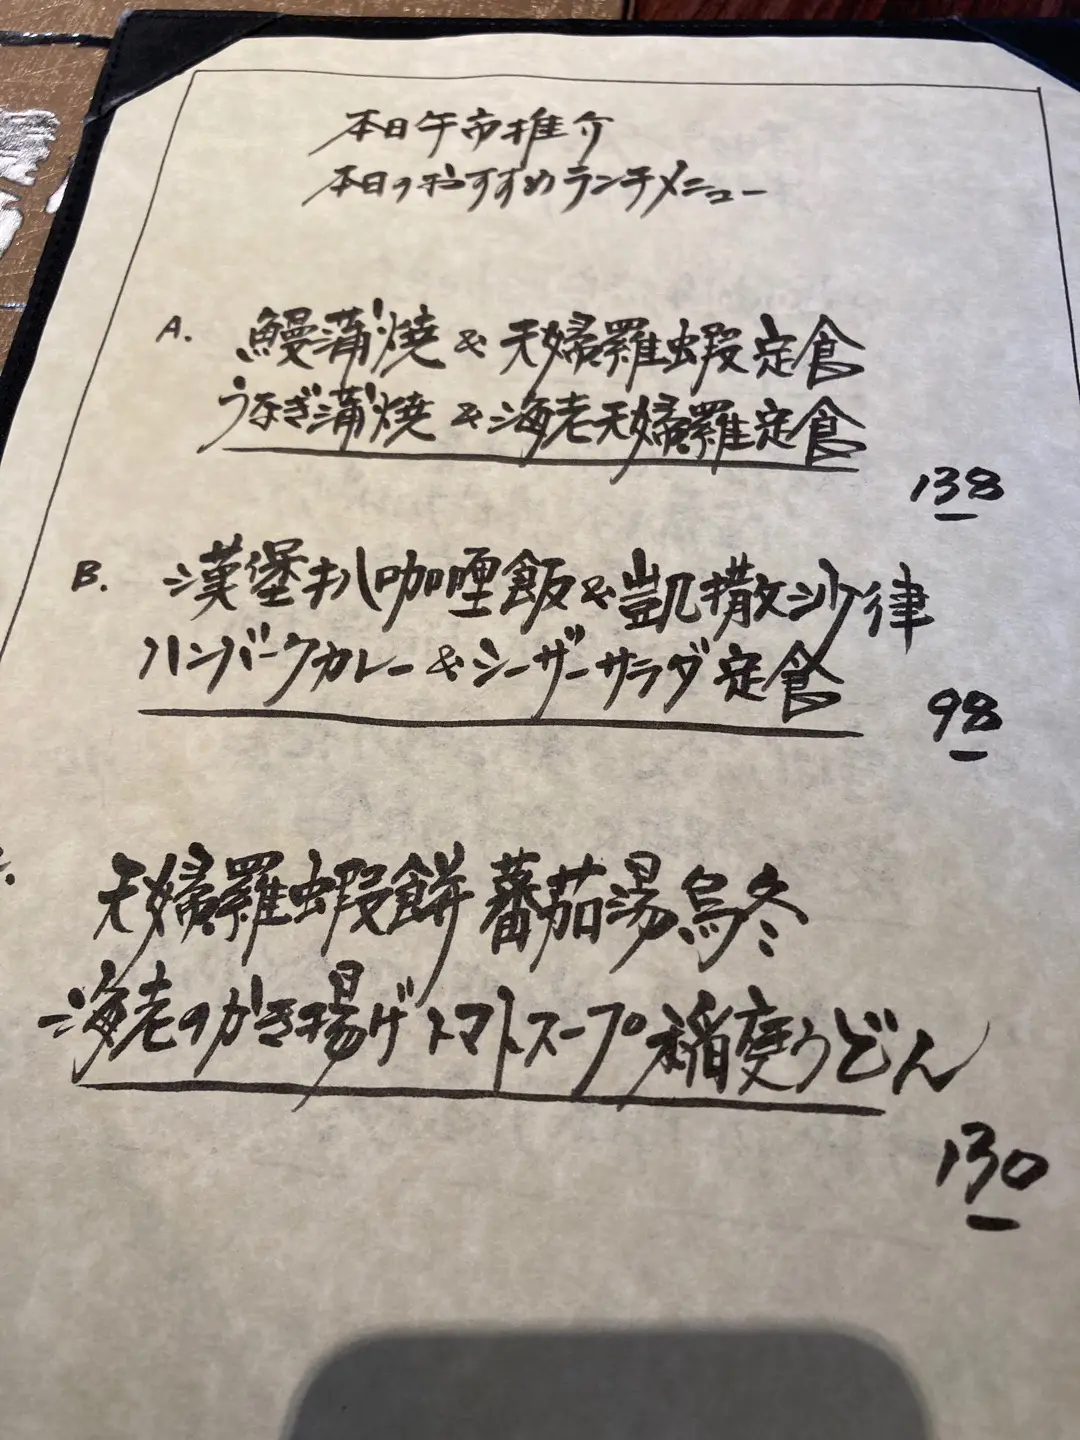 本日午市推介
本日のおすすめランチメニュー
A. 鰻蒲燒 & 天婦羅蝦定食
うなぎ蒲燒 & 海老天婦羅定食
138
B. 漢堡扒咖喱飯 & 凱撒沙律
ハンバークカレー & シーザーサラダ定食
98
天婦羅蝦餅 蕃茄湯烏冬
海老のかき揚げトマトスープ稲庭うどん
130